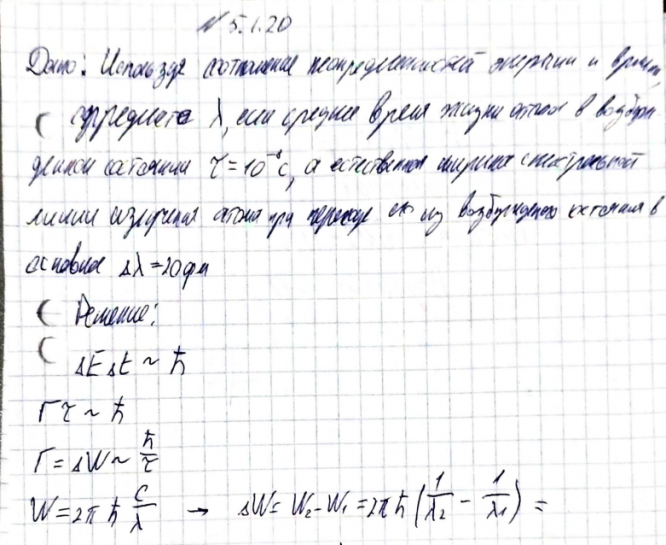 № 5.1.20
Дано: Используя соотношение неопределенностей энергии и времени,
определите λ, если среднее время жизни атома в возбуж
денном состоянии τ = 10⁻⁸с, а естественная ширина спектральной
линии излучения атома при переходе его из возбужденного состояния в
основное Δλ = 20фм
Решение:
ΔEΔt ~ ħ
Γτ ~ ħ
Γ = ΔW ~ ħ/τ
W = 2πħ c/λ → ΔW = W₂ - W₁ = 2πħ (1/λ₂ - 1/λ₁) =